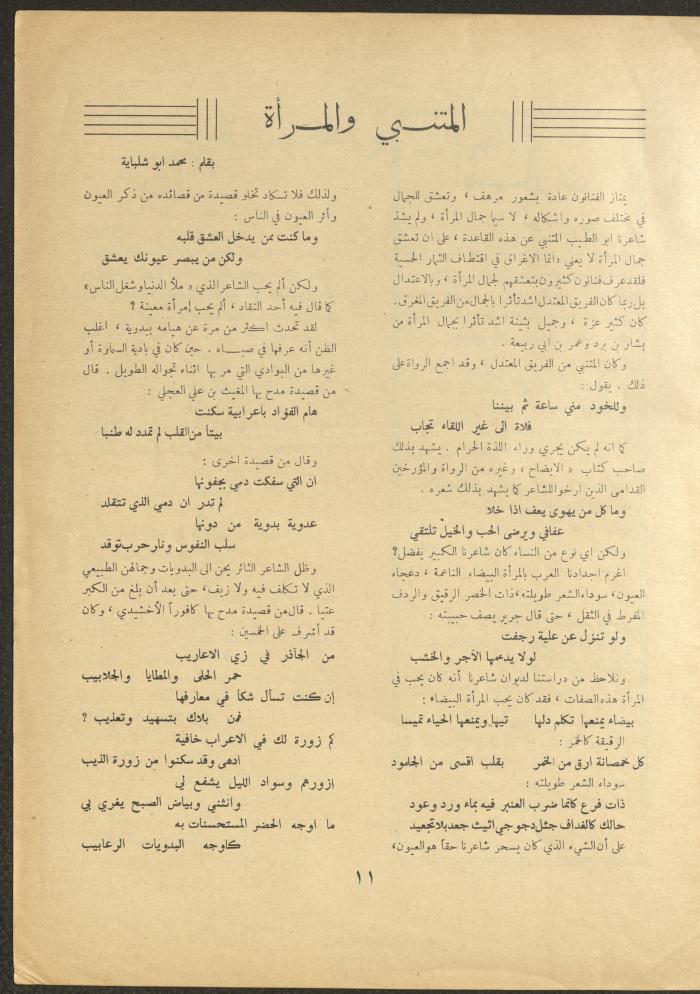 المتنبي والمرأة
بقلم : محمد ابو شلباية
يمتاز الفنانون عادة بشعور مرهف ، وتعشق للجمال
في مختلف صوره واشكاله ، لا سيما جمال المرأة ، ولم يشذ
شاعرنا ابو الطيب المتنبي عن هذه القاعدة ، على ان تعشق
جمال المرأة لا يعني دائما الاغراق في اقتطاف الثمار الحسية
فلقد عرف فنانون كثيرون بتعشقهم لجمال المرأة ، وبالاعتدال
بل ربما كان الفريق المعتدل اشد تأثرا بالجمال من الفريق المغرق.
كان كثير عزة ، وجميل بثينة اشد تأثرا بجمال المرأة من
بشار بن برد وعمر بن ابي ربيعة .
وكان المتنبي من الفريق المعتدل ، وقد اجمع الرواة على
ذلك . يقول :
وللخود مني ساعة ثم بيننا
فلاة الى غير اللقاء تجاب
كما انه لم يكن يجري وراء اللذة الحرام . يشهد بذلك
صاحب كتاب « الايضاح » وغيره من الرواة والمؤرخين
القدامى الذين ارخوا للشاعر كما يشهد بذلك شعره .
وما كل من يهوى يعف اذا خلا
عفافي ويرضى الحب والخيل تلتقي
ولكن اي نوع من النساء كان شاعرنا الكبير يفضل؟
اغرم اجدادنا العرب بالمرأة البيضاء الناعمة ، دعجاء
العيون، سوداء الشعر طويلته، ذات الخصر الرقيق والردف
المفرط في الثقل ، حتى قال جرير يصف حبيبته :
ولو تنزل عن علية رجفت
لولا يدعمها الآجر والخشب
ونلاحظ من دراستنا لديوان شاعرنا أنه كان يحب في
المرأة هذه الصفات ، فقد كان يحب المرأة البيضاء :
بيضاء يمنعها تكلم دلها تيها ويمنعها الحياء تميسا
الرقيقة كالخمر :
كل خمصانة ارق من الخمر بقلب اقسى من الجلمود
سوداء الشعر طويلته :
ذات فرع كانما ضرب العنبر فيه بماء ورد وعود
حالك كالغداف جثل دجوجي اثيث جعد بلا تجعيد
على أن الشيء الذي كان يسحر شاعرنا حقاً هو العيون،
ولذلك فلا تكاد تخلو قصيدة من قصائده من ذكر العيون
وأثر العيون في الناس :
وما كنت ممن يدخل العشق قلبه
ولكن من يبصر عيونك يعشق
ولكن ألم يحب الشاعر الذي « ملأ الدنيا وشغل الناس»
كما قال فيه أحد النقاد ، ألم يحب إمرأة معينة ؟
لقد تحدث اكثر من مرة عن هيامه ببدوية ، اغلب
الظن أنه عرفها في صباه . حين كان في بادية السماوة أو
غيرها من البوادي التي مر بها اثناء تجواله الطويل . قال
من قصيدة مدح بها المغيث بن علي العجلي :
هام الفؤاد باعرابية سكنت
بيتاً من القلب لم تمدد له طنبا
وقال من قصيدة اخرى :
ان التي سفكت دمي بجفونها
لم تدر ان دمي الذي تتقلد
عدوية بدوية من دونها
سلب النفوس ونار حرب توقد
وظل الشاعر الثائر يحن الى البدويات وجمالهن الطبيعي
الذي لا تكلف فيه ولا زيف، حتى بعد أن بلغ من الكبر
عتيا . قال من قصيدة مدح بها كافوراً الأخشيدي ، وكان
قد أشرف على الخمسين :
من الجآذر في زي الاعاريب
حمر الحلى والمطايا والجلابيب
إن كنت تسأل شكاً في معارفها
فمن بلاك بتسهيد وتعذيب ؟
كم زورة لك في الاعراب خافية
ادهى وقد سكنوا من زورة الذيب
ازورهم وسواد الليل يشفع لي
وانثني وبياض الصبح يغري بي
ما اوجه الحضر المستحسنات به
كاوجه البدويات الرعابيب
١١